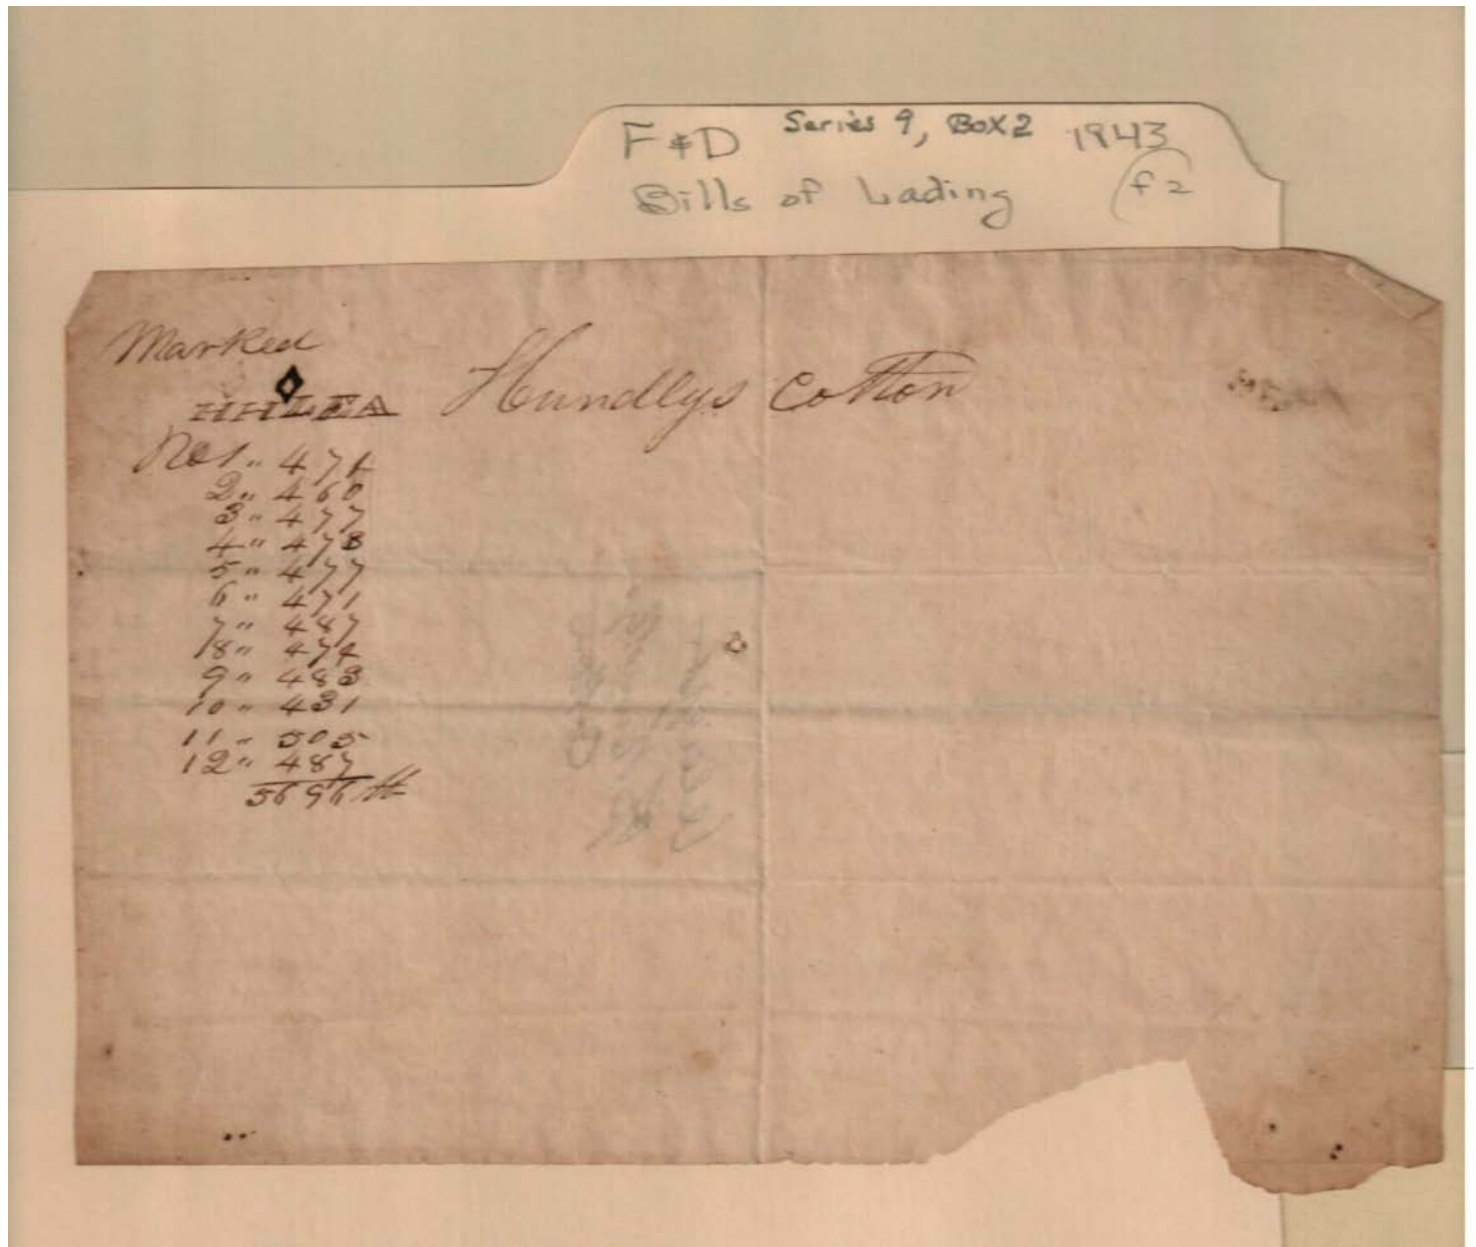 F & D Series 9, Box 2 1843
Bills of Lading (f 2
Marked
HHLEA Hundlys Cotton
No 1 " 474
2 " 460
3 " 477
4 " 478
5 " 477
6 " 471
7 " 487
8 " 474
9 " 483
10 " 431
11 " 505
12 " 487
5696 lb